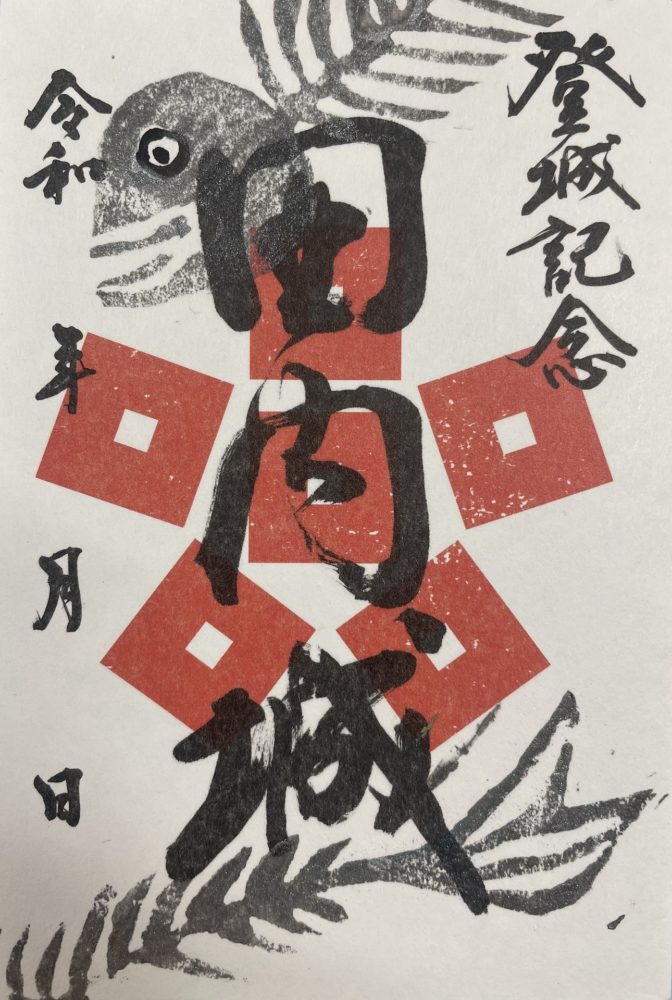 登城記念
田内城
令和 年 月 日